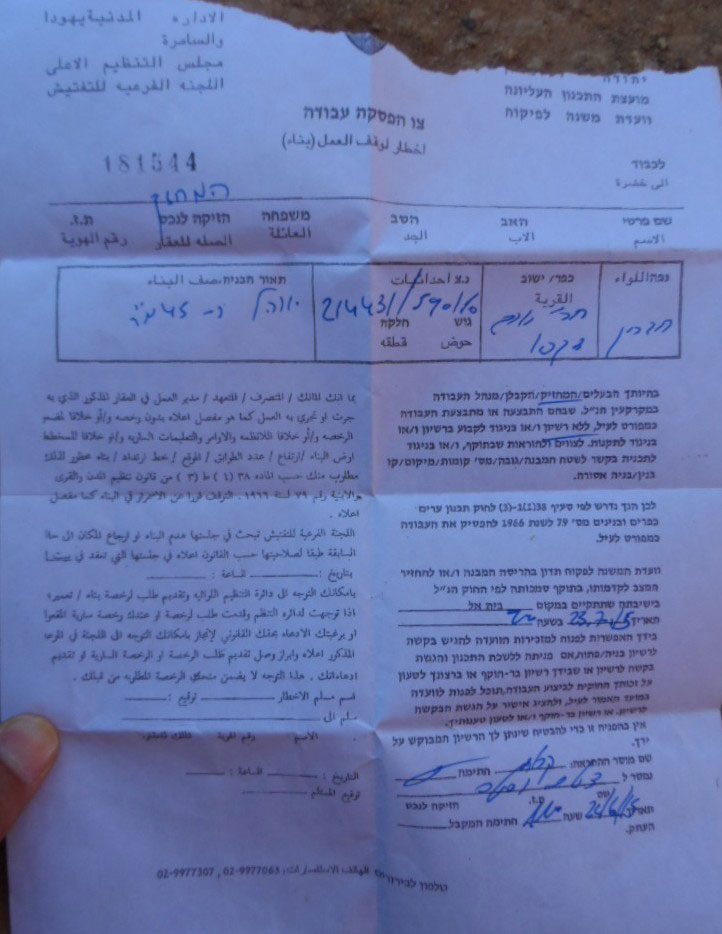 الاداره المدنية يهودا
والسامرة
مجلس التنظيم الاعلى
اللجنه الفرعيه للتفتيش
יהודה
מועצת התכנון העליונה
וועדת משנה לפיקוח
צו הפסקה עבודה
اخطار لوقف العمل (بناء)
181544
לכבוד
الى حضرة
המחזיק
שם פרטי האב הסב משפחה הזיקה לנכס ת.ז.
الاسم الاب الجد العائلة الصله للعقار رقم الهوية
נפה/اللواء כפר/ ישוב נ.צ احداثيات תאור הבניה.صف البناء
القرية
חברון 214431/590160
גוש חלקה
حوض قطعه
בהיותך הבעלים/המחזיק/הקבלן/מנהל העבודה
במקרקעין הנ"ל. שבהם התבצעה או מתבצעת העבודה
כמפורט לעיל, ללא רשיון ו/או בניגוד לקבוע ברשיון ו/או
בניגוד לתקנות. לצווים ולהוראות שבתוקף, ו/או בניגוד
לתכנית בקשר לשטח המבנה/גובה/מס' קומות/מיקום/קו
בנין/בניה אסורה.
לכן הנך נדרש לפי סעיף 38(1)(1-3) לחוק תכנון ערים
כפרים ובנינים מס' 79 לשנת 1966 להפסיק את העבודה
כמפורט לעיל.
וועדת המשנה לפקוח תדון בהריסה המבנה ו/או להחזיר
המצב לקדמותו, בתוקף סמכותה לפי החוק הנ"ל
בישיבתה שתתקיים במקום בית אל
תאריך 23.7.15 בשעה
בידך האפשרות לפנות למזכירות הוועדה להגיש בקשה
לרשיון בניה/פתוח/אם פניתה ללשכת התכנון והגשת
בקשה לרשיון או שבידך רשיון בר-חוקף או ברצתך לטעון
על זכותך החוקית לביצוע העבודה,תוכל לפנות לוועדה
במועד האמור לעיל, ולהציג אישור על הגשת הבקשה
לרשיון. או רשיון בר-חוקף ו/או לטעון טענותיך.
אין בהפניה זו כדי להבטיח שינתן לך הרשיון המבוקש על
ידך.
שם מוסר ההתראה: חתימה
נמסר ל
שם ת.ז. הזיקה לנכס
תאריך 24/6/15 שעה חתימה המקבל
העתק.
بما انك المالك / المتصرف / المتعهد / مدير العمل في العقار المذكور الذي به
جرت او تجري به العمل كما هو مفصل اعلاه بدون رخصه و/أو خلافا لمضمو
الرخصه و/أو خلافا للانظمه والاوامر والتعليمات الساريه و/او خلافا للمخطط
اوض البناء /ارتفاع / عدد الطوابق / الموقع / خط ارتداد / بناء محظور لذلك
مطلوب منك حسب الماده ٣٨ (١) ط (٣) من قانون تنظيم المدن والقرى
والابنية رقم ٧٩ لسنة ١٩٦٦ . التوقف فورا عن الاستمرار في البناء كما مفصل
اعلاه .
اللجنة الفرعية للتفتيش تبحث في جلستها هدم البناء او ارجاع المكان الى حالة
السابقة طبقا لصلاحيتها حسب القانون اعلاه في جلستها التي تنعقد في
بتاريخ: الساعة :
بامكانك التوجه الى دائرة التنظيم اللوائيه وتقديم طلب لرخصة بناء / تعمير؛
اذا توجهت لدائره التنظم وقدمت طلب لرخصة او عندك رخصة سارية المفعول
او برغبتك الادعاء بحقك القانوني لإنجاز بامكانك التوجه الى اللجنة في الموعد
المذكور اعلاه وابراز وصل تقديم طلب الرخصة او الرخصة السارية او تقديم
ادعاءاتك . هذا التوجه لا يضمن منحك الرخصة المطلوبه من قبلك .
قسم مسلم الاخطار : توقيع :
سلم الى
الاسم رقم الهوية
التاريخ : الساعة :
توقيع المستلم
טלפון לבירורים الهاتف للاستفسارات: 02-9977063 , 02-9977307